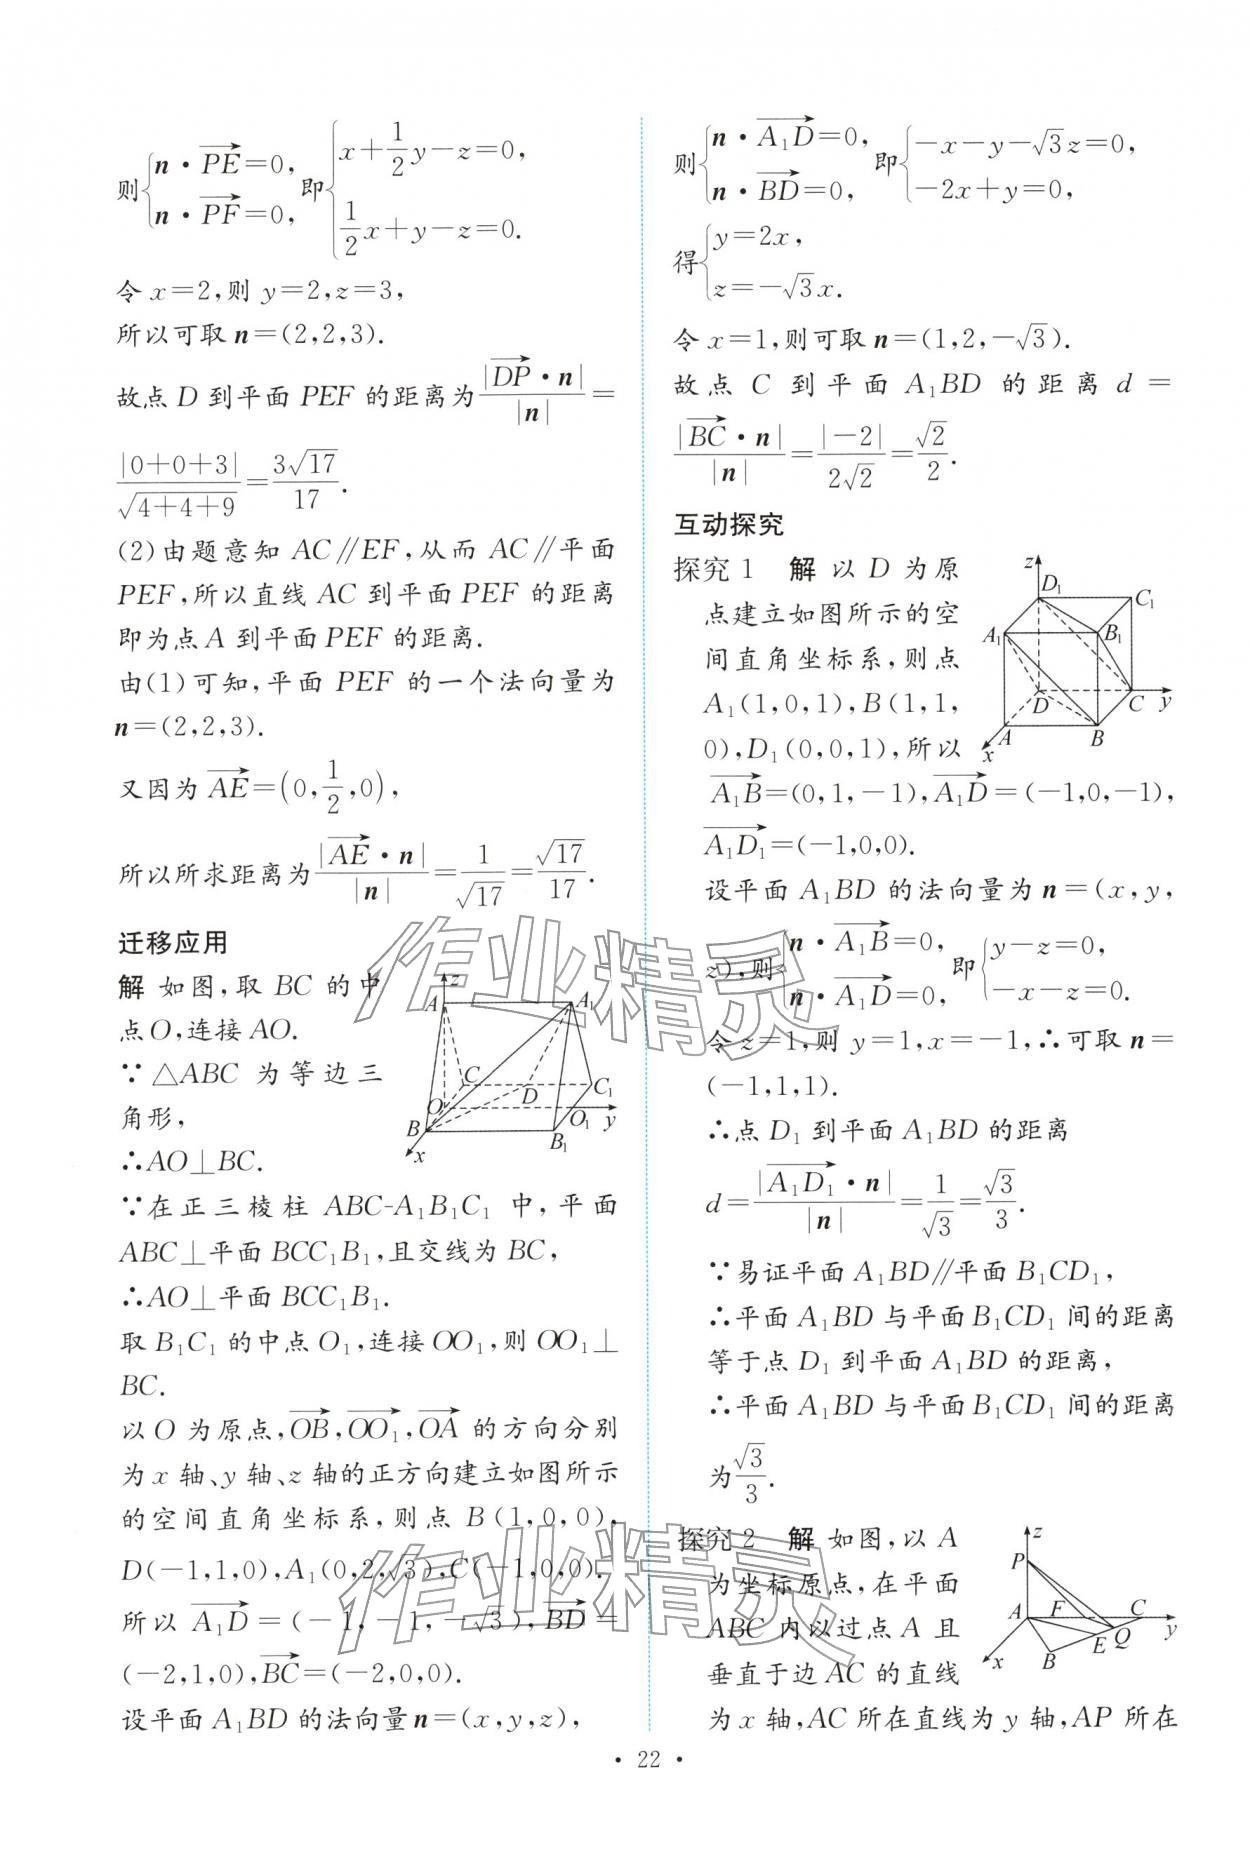 则{n·PE=0, n·PF=0, 即{x+1/2y-z=0, 1/2x+y-z=0.
令 x=2,则 y=2,z=3,
所以可取 n=(2,2,3).
故点 D 到平面 PEF 的距离为|DP·n|/|n|=
|0+0+3|/√4+4+9=3√17/17.
(2)由题意知 AC∥EF,从而 AC∥平面
PEF,所以直线 AC 到平面 PEF 的距离
即为点 A 到平面 PEF 的距离.
由(1)可知,平面 PEF 的一个法向量为
n=(2,2,3).
又因为 AE=(0,1/2,0),
所以所求距离为|AE·n|/|n|=1/√17=√17/17.
迁移应用
解 如图,取 BC 的中
点 O,连接 AO.
∵△ABC 为等边三
角形,
∴AO⊥BC.
z
A
A₁
C
C₁
D
O
O₁
y
B
B₁
x
∵在正三棱柱 ABC-A₁B₁C₁ 中,平面
ABC⊥平面 BCC₁B₁,且交线为 BC,
∴AO⊥平面 BCC₁B₁.
取 B₁C₁ 的中点 O₁,连接 OO₁,则 OO₁⊥
BC.
以 O 为原点,OB,OO₁,OA 的方向分别
为 x 轴、y 轴、z 轴的正方向建立如图所示
的空间直角坐标系,则点 B(1,0,0),
D(-1,1,0),A₁(0,2,√3),C(-1,0,0).
所以 A₁D=(-1,-1,-√3),BD=
(-2,1,0),BC=(-2,0,0).
设平面 A₁BD 的法向量 n=(x,y,z),
则{n·A₁D=0, n·BD=0, 即{-x-y-√3z=0, -2x+y=0,
得{y=2x, z=-√3x.
令 x=1,则可取 n=(1,2,-√3).
故点 C 到平面 A₁BD 的距离 d=
|BC·n|/|n|=|-2|/2√2=√2/2.
互动探究
探究 1 解 以 D 为原
点建立如图所示的空
间直角坐标系,则点
A₁(1,0,1),B(1,1,
0),D₁(0,0,1),所以
z
D₁
C₁
A₁
B₁
D
C
y
A
B
x
A₁B=(0,1,-1),A₁D=(-1,0,-1),
A₁D₁=(-1,0,0).
设平面 A₁BD 的法向量为 n=(x,y,
z),则{n·A₁B=0, n·A₁D=0, 即{y-z=0, -x-z=0.
令 z=1,则 y=1,x=-1,∴可取 n=
(-1,1,1).
∴点 D₁ 到平面 A₁BD 的距离
d=|A₁D₁·n|/|n|=1/√3=√3/3.
∵易证平面 A₁BD∥平面 B₁CD₁,
∴平面 A₁BD 与平面 B₁CD₁ 间的距离
等于点 D₁ 到平面 A₁BD 的距离,
∴平面 A₁BD 与平面 B₁CD₁ 间的距离
为√3/3.
探究 2 解 如图,以 A
为坐标原点,在平面
ABC 内以过点 A 且
垂直于边 AC 的直线
z
P
A
F
C
E
Q
y
x
B
为 x 轴,AC 所在直线为 y 轴,AP 所在
作业精灵
作业精灵
·22·